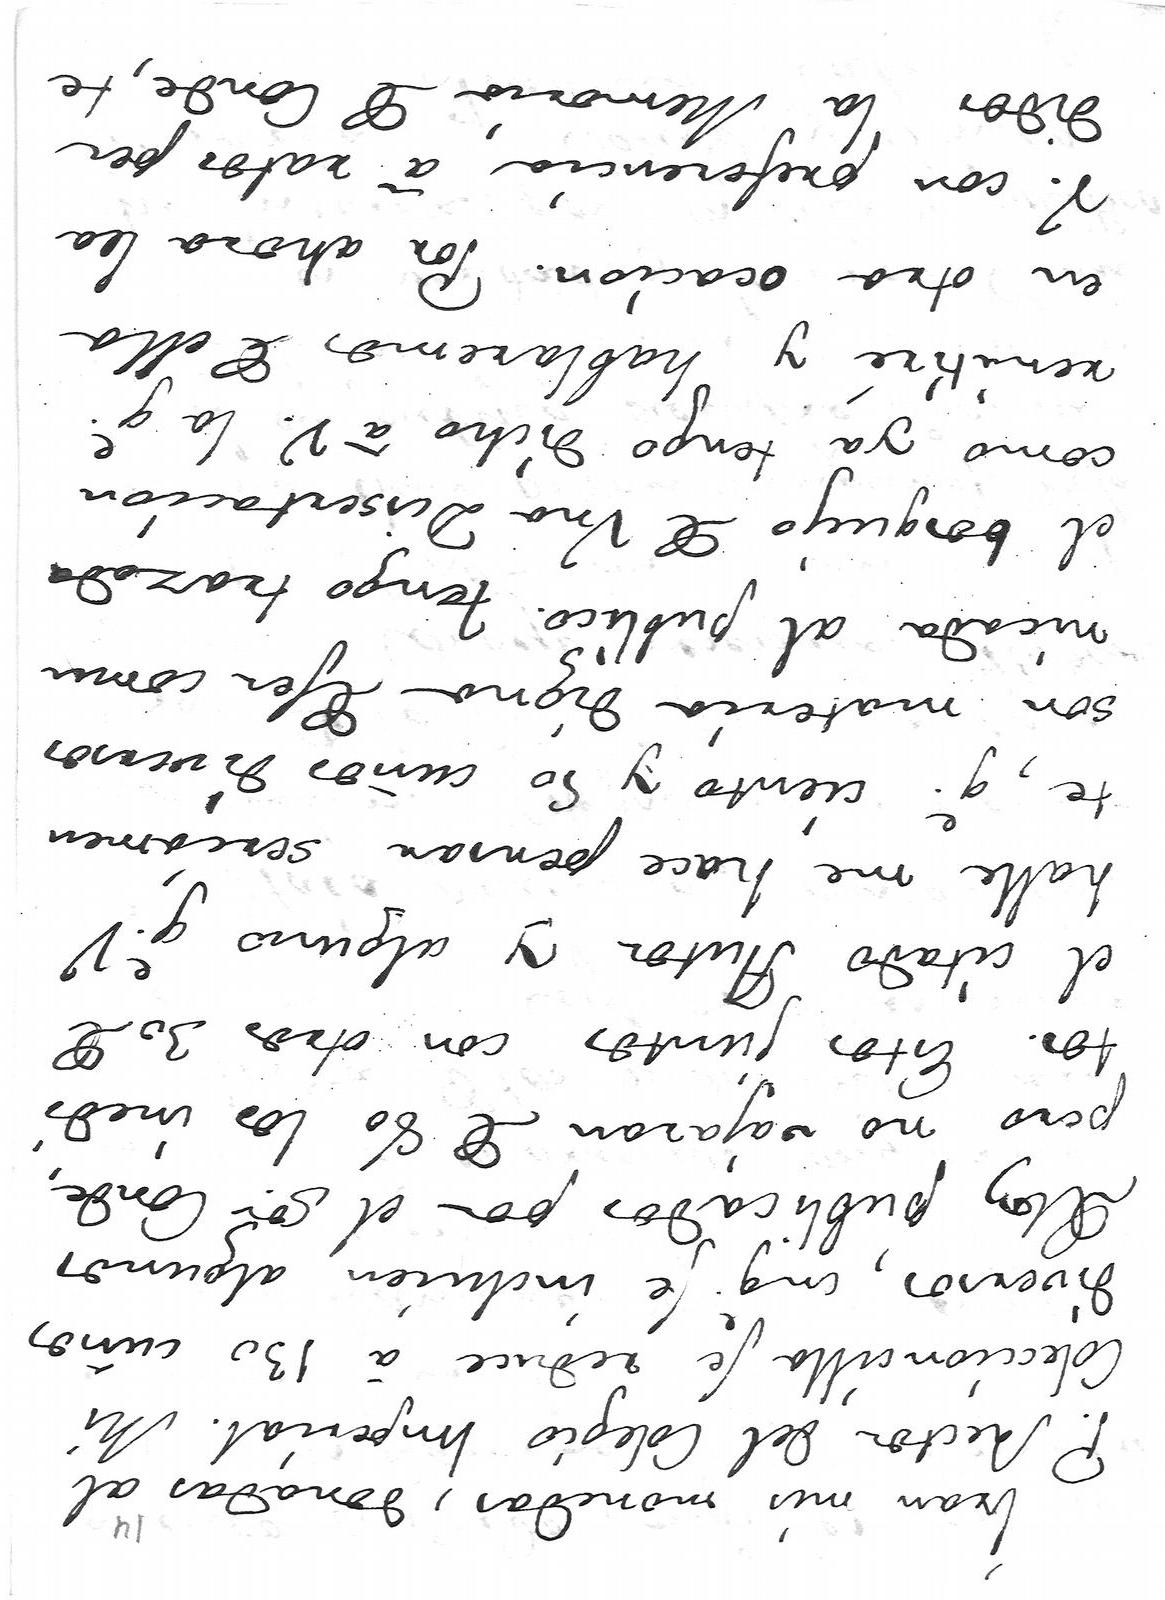 14
iran mis monedas, donadas al
P. Rector del Colegio Imperial. Mi
Coleccioncilla se reduce à 130 cuños
diversos, en q.e se inclúien algunos
de los publicados por el Sor. Conde,
pero no vajaran de 80 los inedi
tos. Estos juntos con otros 30 de
el citado Autor y alguno q.e V.
halle me hace pensar seriamen
te, q.e ciento y 80 cuños diversos
son materia digna de ser comu
nicada al publico. Tengo trazado
el borquejo de Vna Disertación
como ya tengo dicho à V. la q.e
remitiré y hablaremos de ella
en otra ocacion. Por ahora lea
V. con preferencia, à ratos per
didos la Memoria de Conde, te